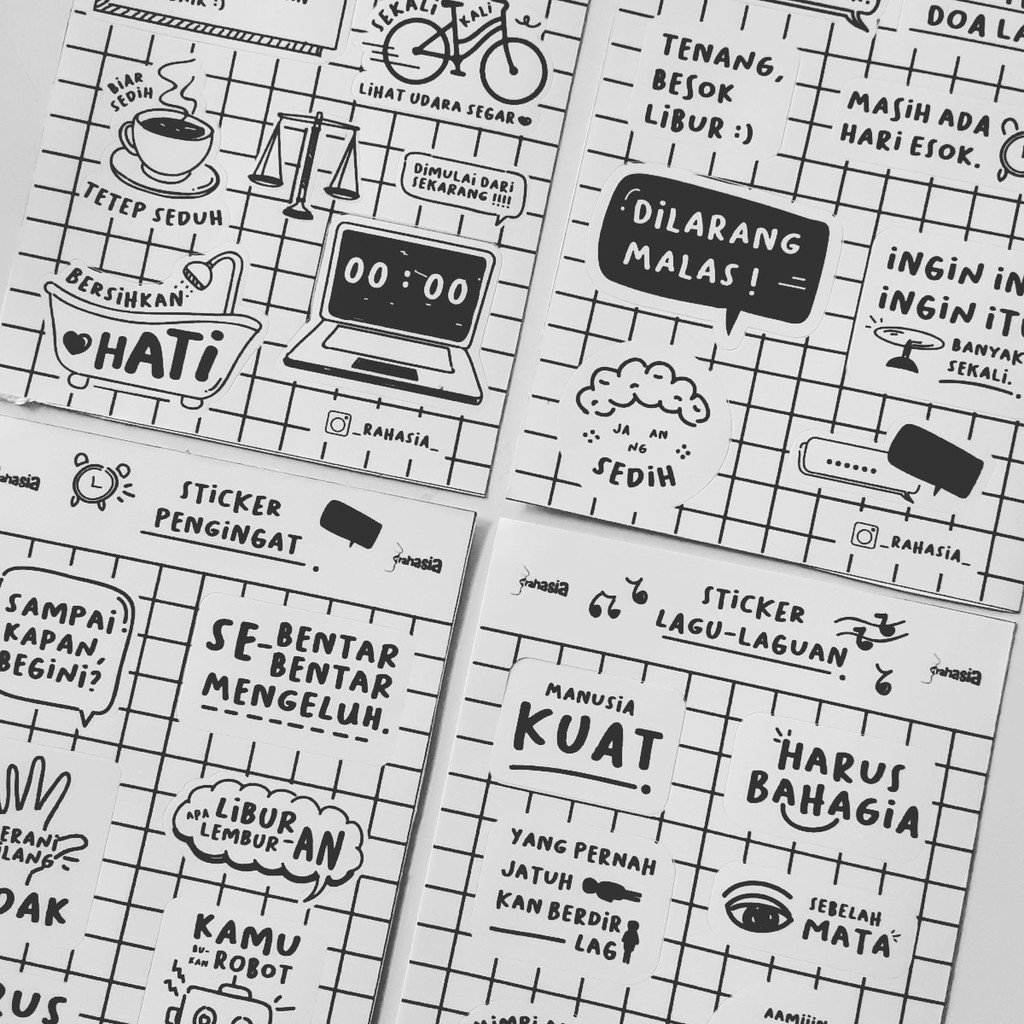 SEKALI KALI
LIHAT UDARA SEGAR
BIAR
SEDIH
TETEP SEDUH
DIMULAI DARI
SEKARANG !!!!
00 : 00
BERSIHKAN
HATI
_RAHASIA_
DOA
TENANG,
BESOK
LIBUR :)
MASIH ADA
HARI ESOK.
DILARANG
MALAS !
INGIN
INGIN
BANYAK
SEKALI.
JA AN
NG
SEDIH
_RAHASIA_
STICKER
PENGINGAT
rahasia
SAMPAI
KAPAN,
BEGINI?
SE-BENTAR
BENTAR
MENGELUH.
APA LIBUR
LEMBUR-AN
KAMU
BU-
KAN ROBOT
rahasia
STICKER
LAGU-LAGUAN
rahasia
MANUSIA
KUAT
HARUS
BAHAGIA
YANG PERNAH
JATUH
KAN BERDIR
LAG
SEBELAH
MATA
AAMIIIN